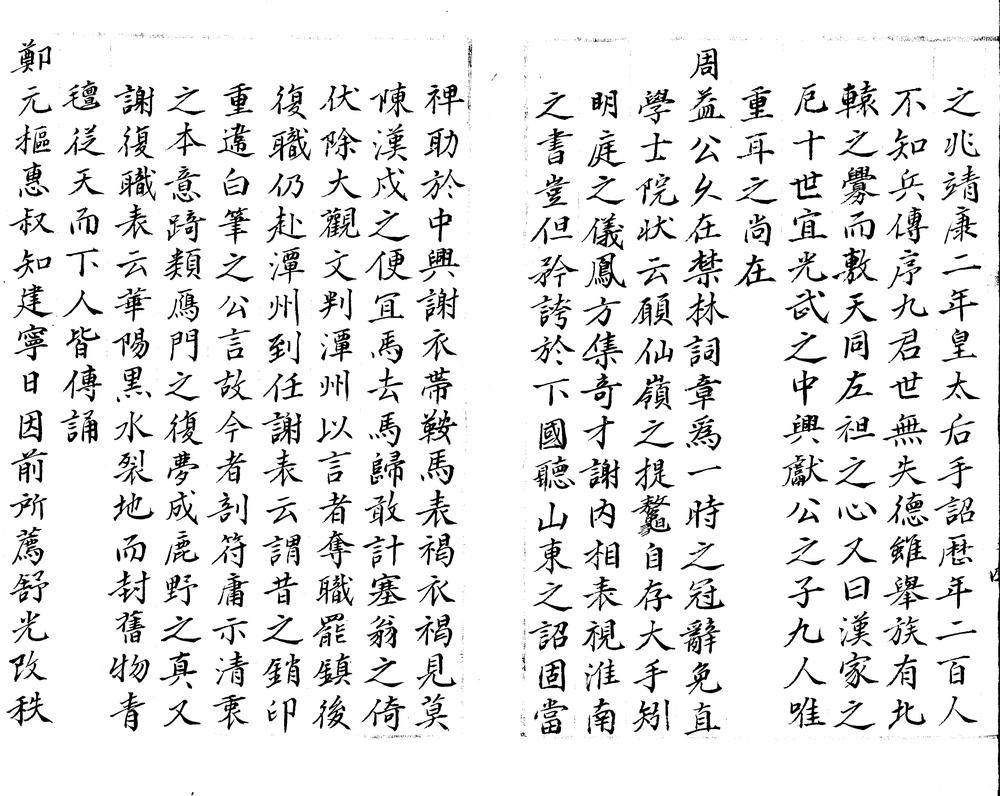 之兆靖康二年皇太后手詔歷年二百人
不知兵傳序九君世無失德雖舉族有北
轅之釁而敷天同左袒之心又曰漢家之
厄十世宜光武之中興獻公之子九人唯
重耳之尚在
周益公久在禁林詞章爲一時之冠辭免直
學士院狀云願仙嶺之提鼇自存大手矧
明庭之儀鳳方集奇才謝内相表視淮南
之書豈但矜誇於下國聽山東之詔固當
裨助於中興謝衣帶鞍馬表褐衣褐見莫
陳漢戍之便宜馬去馬歸敢計塞翁之倚
伏除大觀文判潭州以言者奪職罷鎮後
復職仍赴潭州到任謝表云謂昔之銷印
重違白筆之公言故今者剖符庸示清衷
之本意踦類鴈門之復夢成鹿野之真又
謝復職表云華陽黑水裂地而封舊物青
氊從天而下人皆傳誦
鄭元樞惠叔知建寧日因前所薦舒光改秩